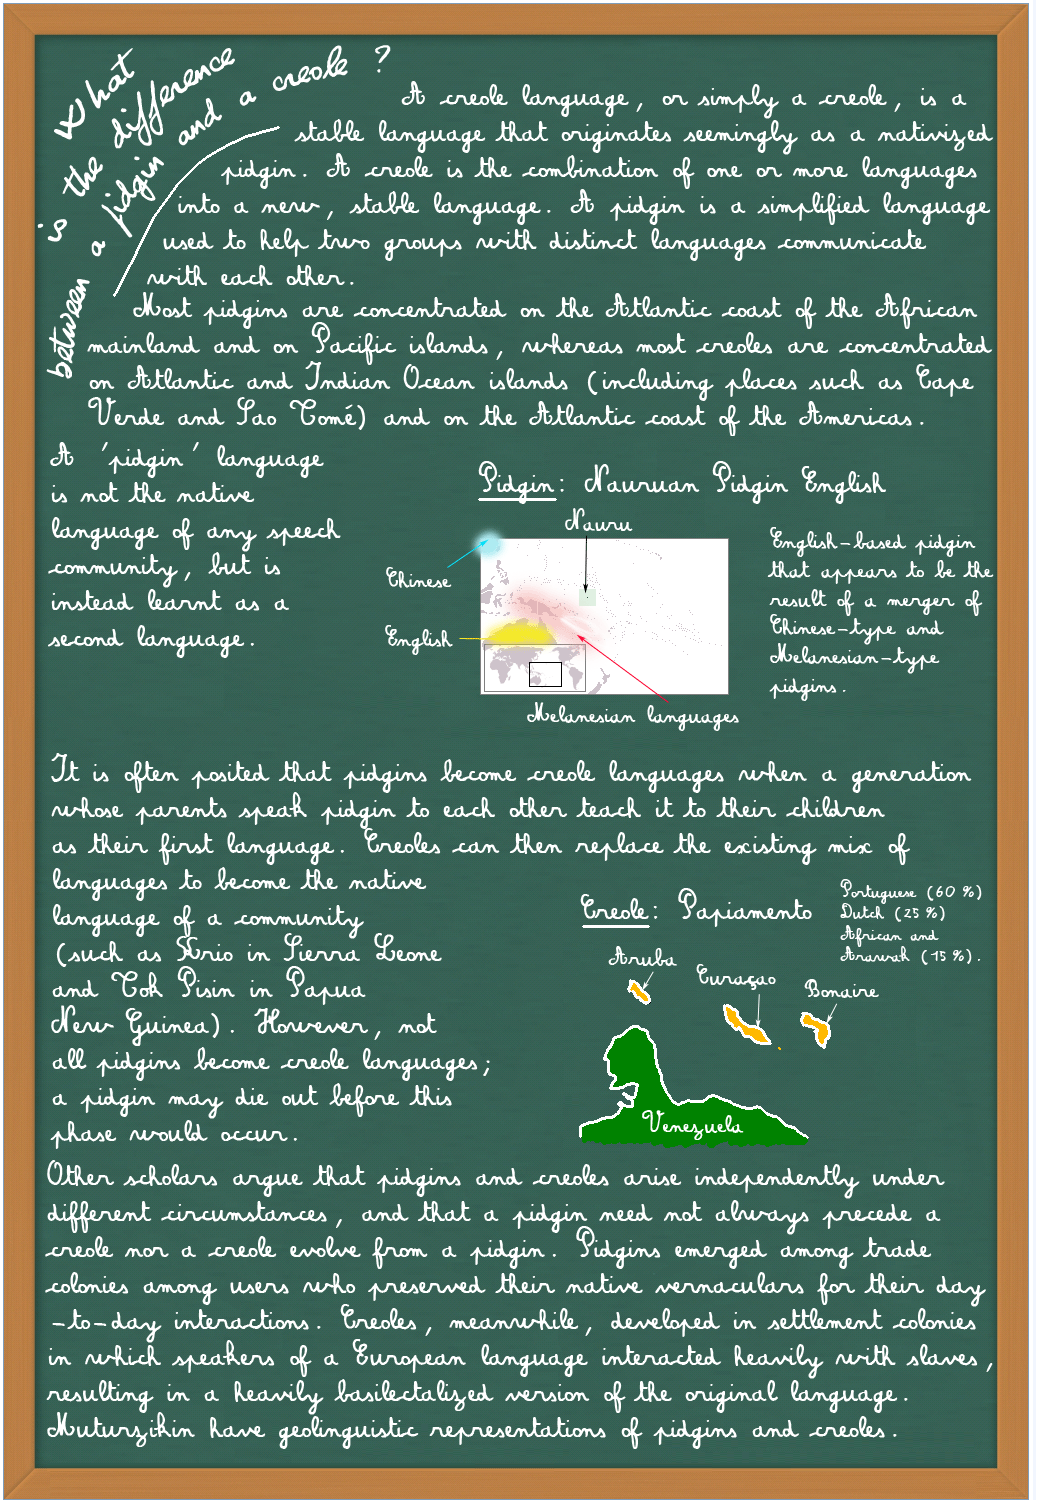 What
is the difference
between a pidgin and a creole ?
A creole language, or simply a creole, is a
stable language that originates seemingly as a nativized
pidgin. A creole is the combination of one or more languages
into a new, stable language. A pidgin is a simplified language
used to help two groups with distinct languages communicate
with each other.
Most pidgins are concentrated on the Atlantic coast of the African
mainland and on Pacific islands, whereas most creoles are concentrated
on Atlantic and Indian Ocean islands (including places such as Cape
Verde and Sao Tomé) and on the Atlantic coast of the Americas.
A 'pidgin' language
is not the native
language of any speech
community, but is
instead learnt as a
second language.
Pidgin: Nauruan Pidgin English
Nauru
Chinese
English
Melanesian languages
English-based pidgin
that appears to be the
result of a merger of
Chinese-type and
Melanesian-type
pidgins.
It is often posited that pidgins become creole languages when a generation
whose parents speak pidgin to each other teach it to their children
as their first language. Creoles can then replace the existing mix of
languages to become the native
language of a community
(such as Krio in Sierra Leone
and Tok Pisin in Papua
New Guinea). However, not
all pidgins become creole languages;
a pidgin may die out before this
phase would occur.
Creole: Papiamento
Portuguese (60 %)
Dutch (25 %)
African and
Arawak (15 %).
Aruba
Curaçao
Bonaire
Venezuela
Other scholars argue that pidgins and creoles arise independently under
different circumstances, and that a pidgin need not always precede a
creole nor a creole evolve from a pidgin. Pidgins emerged among trade
colonies among users who preserved their native vernaculars for their day
-to-day interactions. Creoles, meanwhile, developed in settlement colonies
in which speakers of a European language interacted heavily with slaves,
resulting in a heavily basilectalized version of the original language.
Muturzikin have geolinguistic representations of pidgins and creoles.